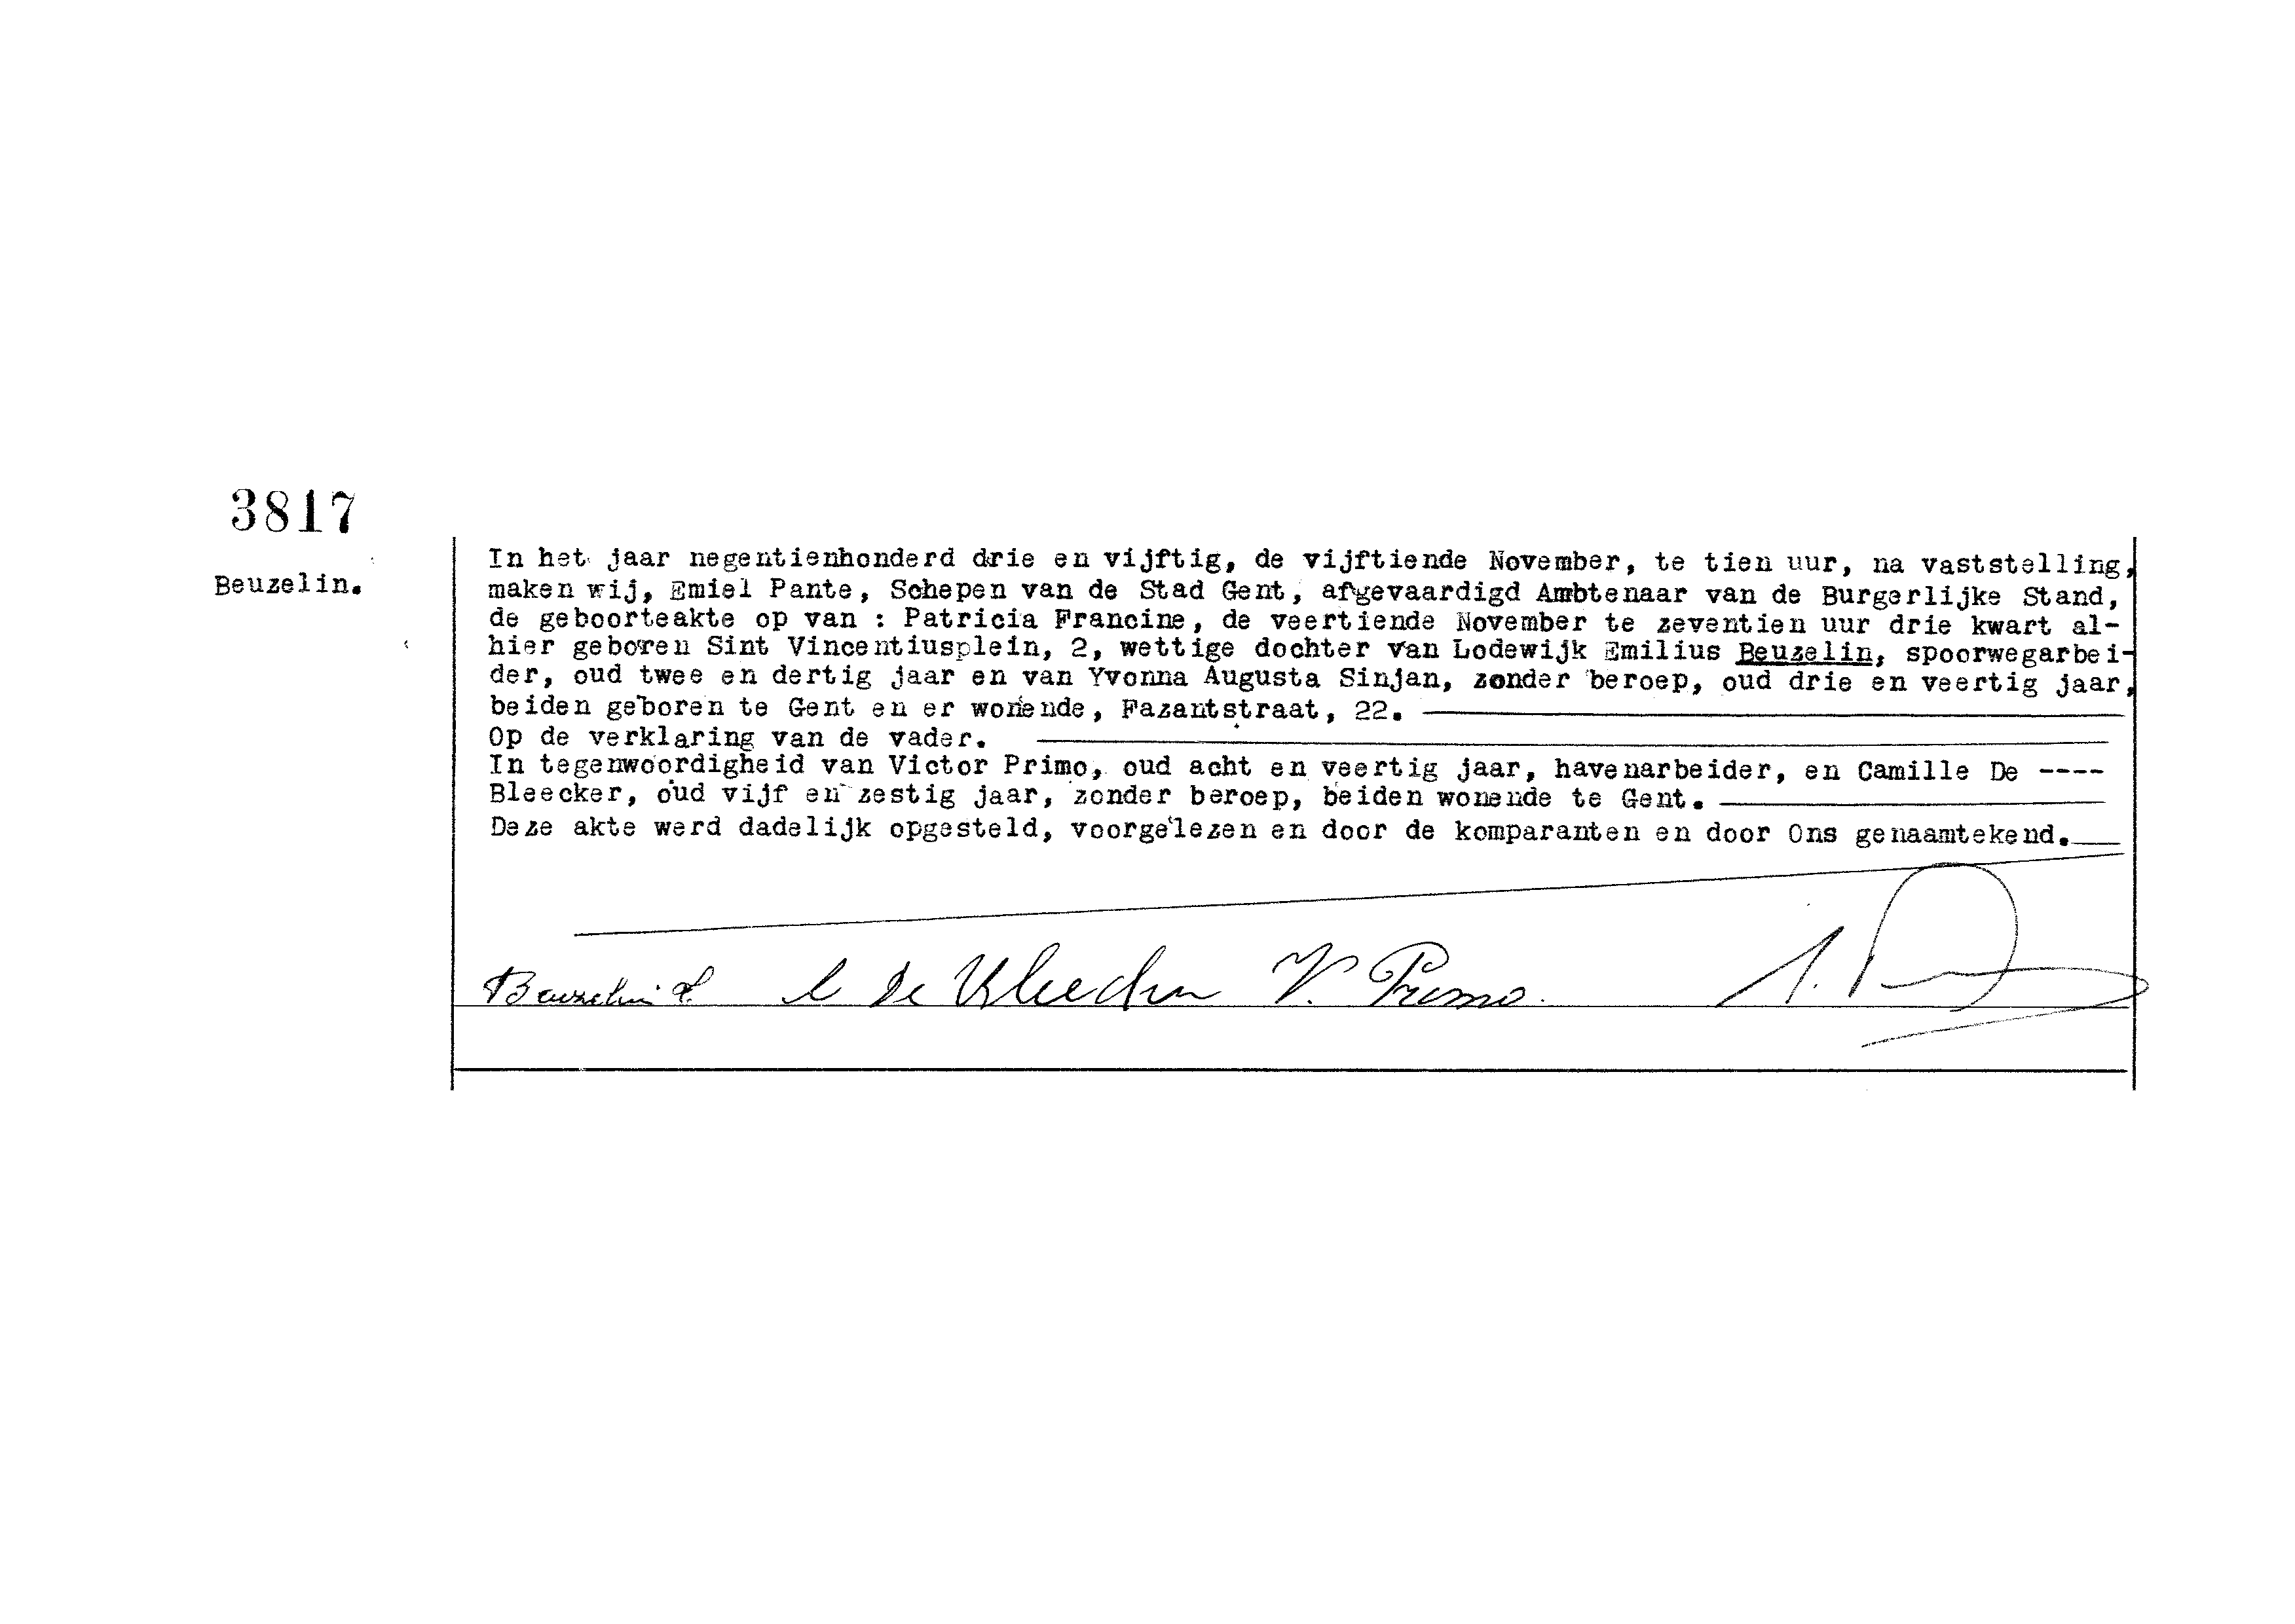 3817
Beuzelin.
In het jaar negentienhonderd drie en vijftig, de vijftiende November, te tien uur, na vaststelling,
maken wij, Emiel Pante, Schepen van de Stad Gent, afgevaardigd Ambtenaar van de Burgerlijke Stand,
de geboorteakte op van : Patricia Francine, de veertiende November te zeventien uur drie kwart al-
hier geboren Sint Vincentiusplein, 2, wettige dochter van Lodewijk Emilius Beuzelin, spoorwegarbei-
der, oud twee en dertig jaar en van Yvonna Augusta Sinjan, zonder beroep, oud drie en veertig jaar,
beiden geboren te Gent en er wonende, Fazantstraat, 22.
Op de verklaring van de vader.
In tegenwoordigheid van Victor Primo, oud acht en veertig jaar, havenarbeider, en Camille De ----
Bleecker, oud vijf en zestig jaar, zonder beroep, beiden wonende te Gent.
Deze akte werd dadelijk opgesteld, voorgelezen en door de komparanten en door Ons genaamtekend.
Beuzelin L. C De Bleecker V. Primo